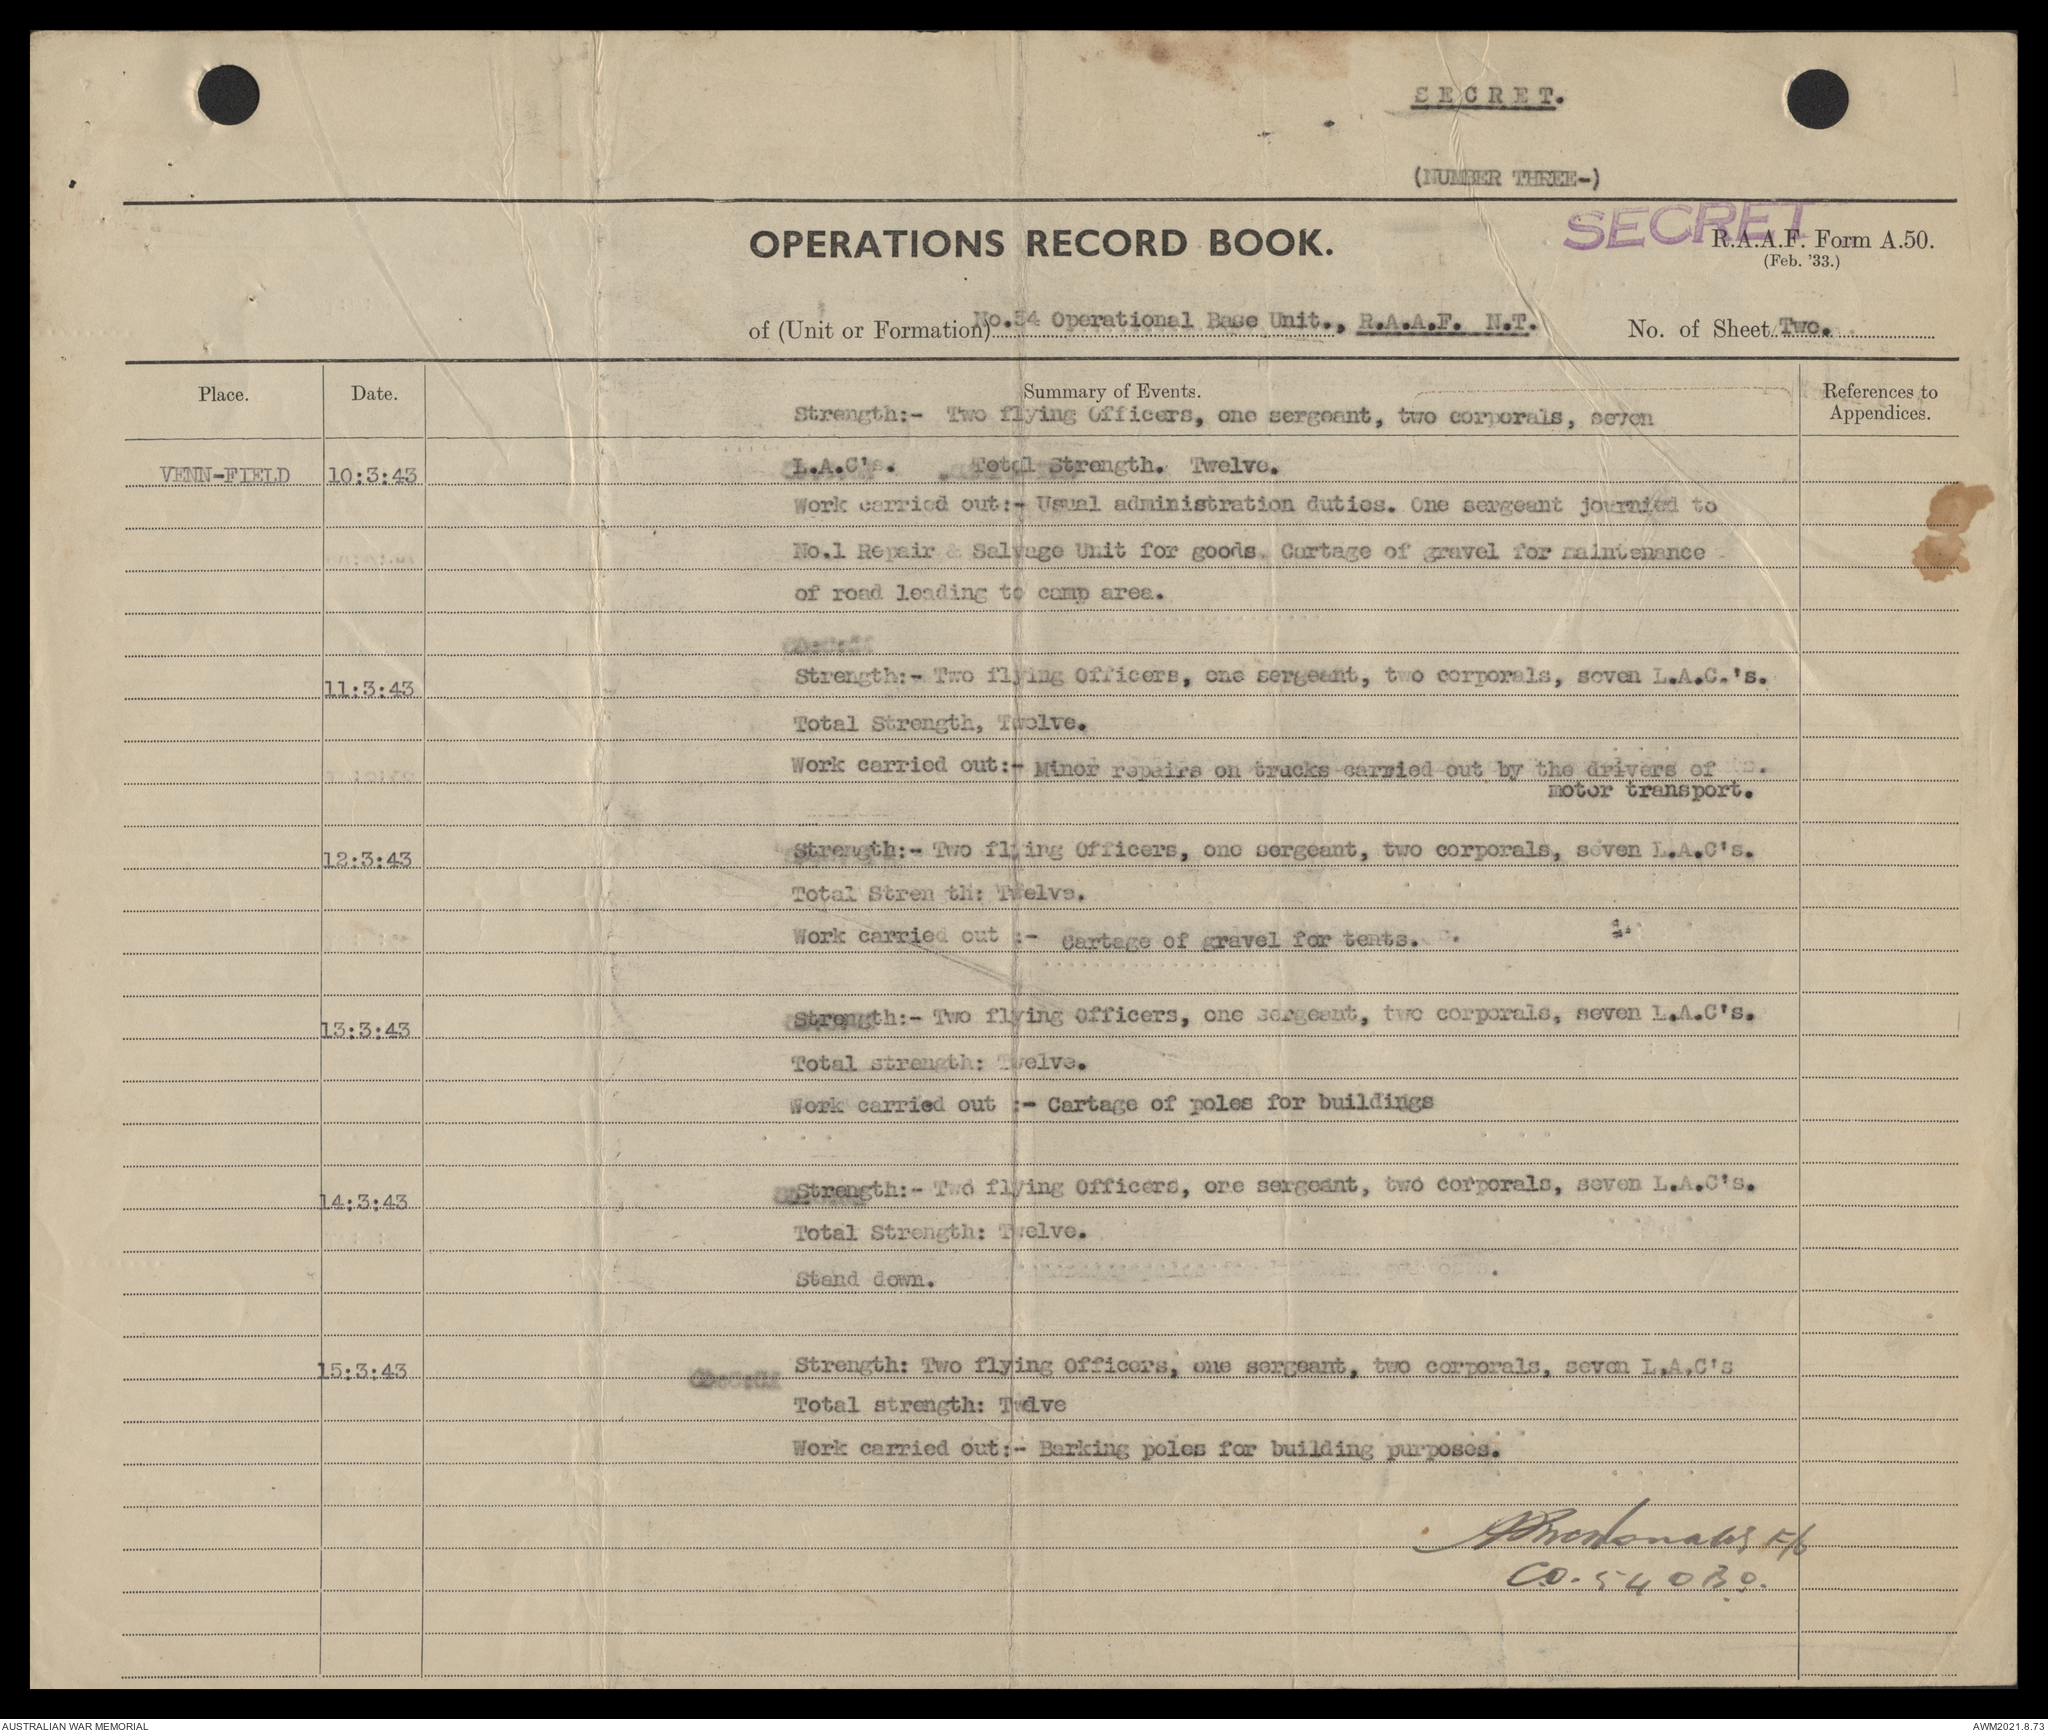 SECRET.
(NUMBER THREE-)
SECRET
OPERATIONS RECORD BOOK.
R.A.A.F. Form A.50.
(Feb. '33.)
of (Unit or Formation) No.54 Operational Base Unit., R.A.A.F. N.T.
No. of Sheet Two.
Place. Date. Summary of Events. References to
Appendices.
Strength:- Two flying Officers, one sergeant, two corporals, seven
VENN-FIELD 10:3:43 L.A.C's. Total Strength. Twelve.
Work carried out:- Usual administration duties. One sergeant journied to
No.1 Repair & Salvage Unit for goods. Cartage of gravel for maintenance
of road leading to camp area.
11:3:43 Strength:- Two flying Officers, one sergeant, two corporals, seven L.A.C.'s.
Total Strength, Twelve.
Work carried out:- Minor repairs on trucks carried out by the drivers of
motor transport.
12:3:43 Strength:- Two flying Officers, one sergeant, two corporals, seven L.A.C's.
Total Stren th: Twelve.
Work carried out :- Cartage of gravel for tents.
13:3:43 Strength:- Two flying Officers, one sergeant, two corporals, seven L.A.C's.
Total strength: Twelve.
Work carried out :- Cartage of poles for buildings
14:3:43 Strength:- Two flying Officers, one sergeant, two corporals, seven L.A.C's.
Total Strength: Twelve.
Stand down.
15:3:43 Strength: Two flying Officers, one sergeant, two corporals, seven L.A.C's
Total strength: Twelve
Work carried out:- Barking poles for building purposes.
F/O
C.O. 54 OBU.
AUSTRALIAN WAR MEMORIAL
AWM2021.8.73